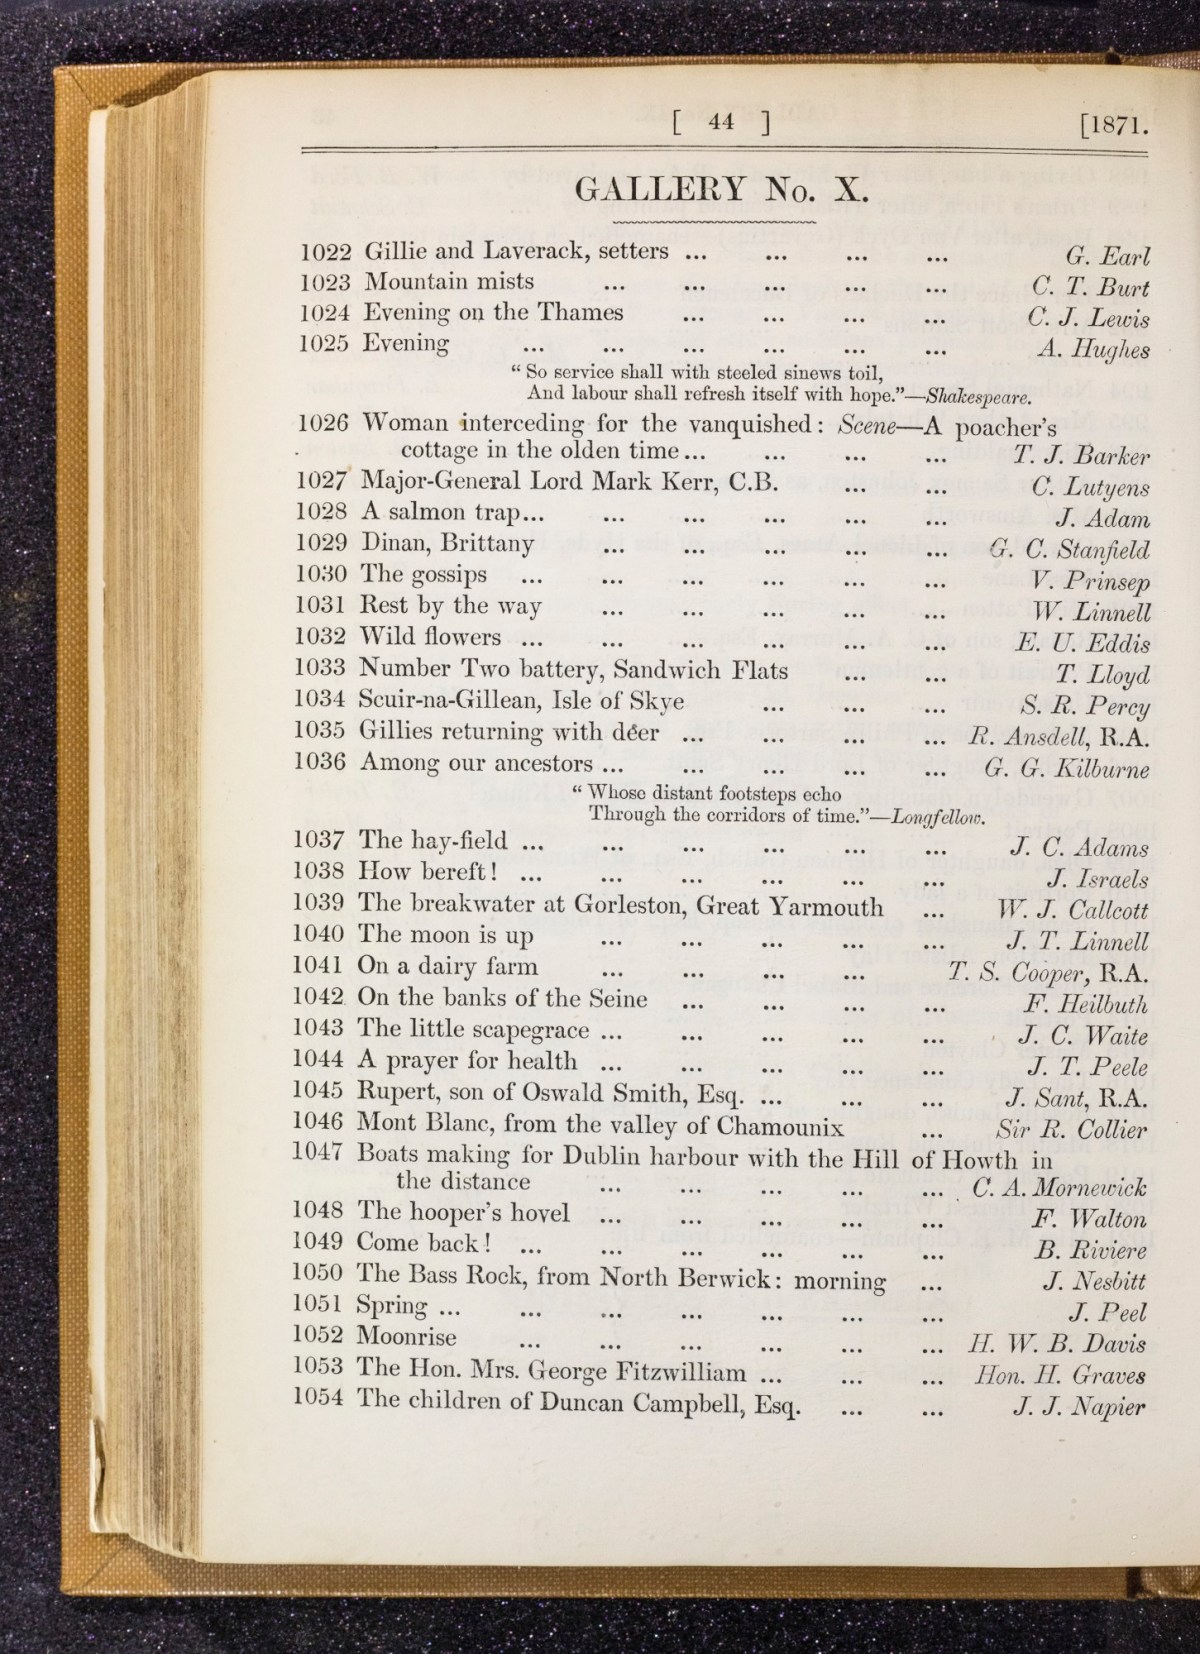 [ 44 ] [1871.
GALLERY No. X.
1022 Gillie and Laverack, setters ... ... ... ... G. Earl
1023 Mountain mists ... ... ... ... ... C. T. Burt
1024 Evening on the Thames ... ... ... ... C. J. Lewis
1025 Evening ... ... ... ... ... ... A. Hughes
"So service shall with steeled sinews toil,
And labour shall refresh itself with hope."—Shakespeare.
1026 Woman interceding for the vanquished: Scene—A poacher's
cottage in the olden time ... ... ... ... T. J. Barker
1027 Major-General Lord Mark Kerr, C.B. ... ... C. Lutyens
1028 A salmon trap... ... ... ... ... ... J. Adam
1029 Dinan, Brittany ... ... ... ... ... G. C. Stanfield
1030 The gossips ... ... ... ... ... ... V. Prinsep
1031 Rest by the way ... ... ... ... ... W. Linnell
1032 Wild flowers ... ... ... ... ... ... E. U. Eddis
1033 Number Two battery, Sandwich Flats ... ... T. Lloyd
1034 Scuir-na-Gillean, Isle of Skye ... ... ... S. R. Percy
1035 Gillies returning with deer ... ... ... ... R. Ansdell, R.A.
1036 Among our ancestors ... ... ... ... ... G. G. Kilburne
"Whose distant footsteps echo
Through the corridors of time."—Longfellow.
1037 The hay-field ... ... ... ... ... ... J. C. Adams
1038 How bereft! ... ... ... ... ... ... J. Israels
1039 The breakwater at Gorleston, Great Yarmouth ... W. J. Callcott
1040 The moon is up ... ... ... ... ... J. T. Linnell
1041 On a dairy farm ... ... ... ... T. S. Cooper, R.A.
1042 On the banks of the Seine ... ... ... ... F. Heilbuth
1043 The little scapegrace ... ... ... ... ... J. C. Waite
1044 A prayer for health ... ... ... ... ... J. T. Peele
1045 Rupert, son of Oswald Smith, Esq. ... ... ... J. Sant, R.A.
1046 Mont Blanc, from the valley of Chamounix ... Sir R. Collier
1047 Boats making for Dublin harbour with the Hill of Howth in
the distance ... ... ... ... ... C. A. Mornewick
1048 The hooper's hovel ... ... ... ... ... F. Walton
1049 Come back! ... ... ... ... ... ... B. Riviere
1050 The Bass Rock, from North Berwick: morning ... J. Nesbitt
1051 Spring ... ... ... ... ... ... ... J. Peel
1052 Moonrise ... ... ... ... ... ... H. W. B. Davis
1053 The Hon. Mrs. George Fitzwilliam ... ... ... Hon. H. Graves
1054 The children of Duncan Campbell, Esq. ... ... J. J. Napier